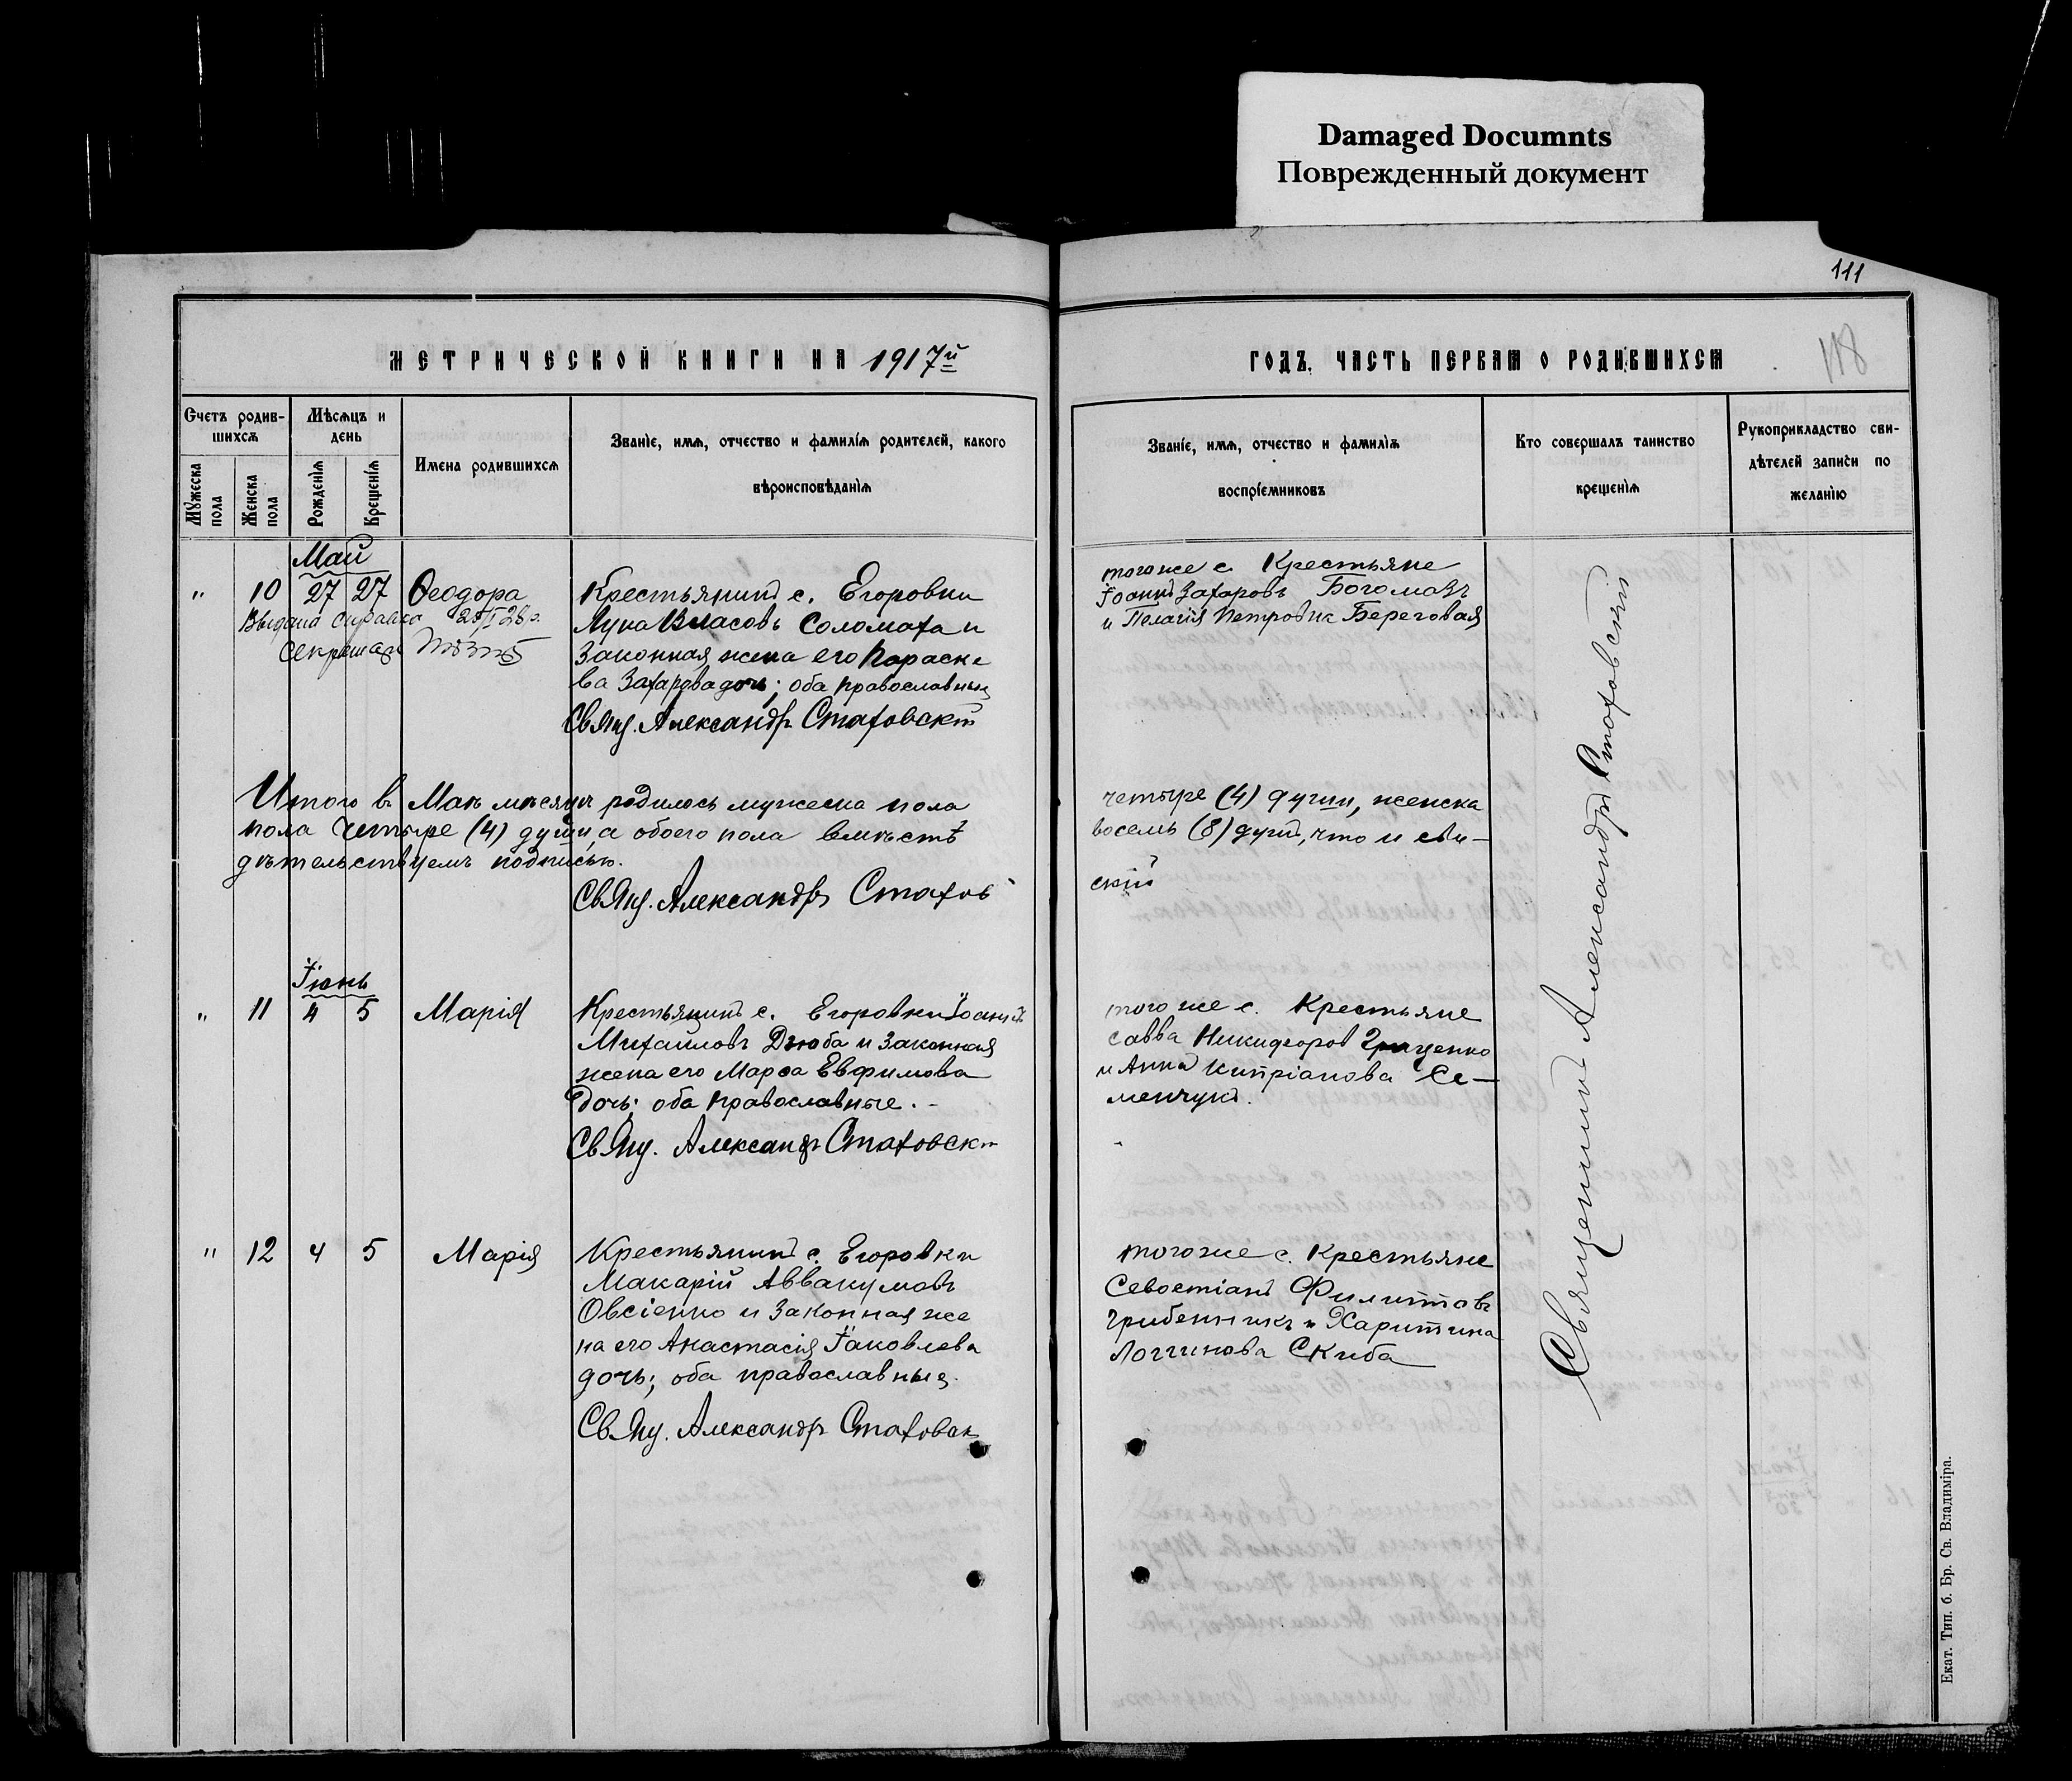 Damaged Documnts
Поврежденный документ
111
118
МЕТРИЧЕСКОЙ КНИГИ НА 1917й
ГОДЪ, ЧАСТЬ ПЕРВАѦ О РОДИВШИХСѦ
Счетъ родив-
шихсѧ
Мѣсѧцъ и
день
Мужеска
пола
Женска
пола
Рожденїѧ
Крещенїѧ
Имена родившихсѧ
Званїе, имѧ, отчество и фамилїѧ родителей, какого
вѣроисповѣданїѧ
Званїе, имѧ, отчество и фамилїѧ
воспрїемниковъ
Кто совершалъ таинство
крещенїѧ
Рукоприкладство сви-
дѣтелей записи по
желанїю
Май
" 10 27 27 Ѳеодора
Выдана справка
Секретарь
Крестьянинъ с. Егоровки
Лука Власовъ Соломаха и
законная жена его Параске
ва Захарова дочь; оба православныя
СвЯщ. Александръ Стаховскі
тогоже с. Крестьяне
Іоаннъ Захаровъ Богомазъ
и Пелагія Петровна Береговая
Итого въ Маѣ мѣсяцѣ родилось мужеска пола
четыре (4) души, женска
пола четыре (4) души, а обоего пола вмѣстѣ
восемь (8) душъ, что и сви-
дѣтельствуемъ подписью.
СвЯщ. Александръ Стахов
скій
Іюнь
" 11 4 5 Марія
Крестьянинъ с. Егоровки Іоаннъ
Михаиловъ Дзюба и законная
жена его Марѳа Евфимова
дочь; оба православные.-
СвЯщ. Александръ Стаховскі
тогоже с. Крестьяне
Савва Никифоров Гриценко
и Анна Кипріанова Се-
менчукъ.
" 12 4 5 Марія
Крестьянинъ с. Егоровки
Макарій Аввакумовъ
Овсіенко и законная же
на его Анастасія Іаковлева
дочь; оба православныя.
СвЯщ. Александръ Стаховск
тогоже с. Крестьяне
Севостіанъ Филиповъ
Грибенникъ и Харитина
Логгинова Скиба
Священникъ Александръ Стаховскій
Екат. Тип. б. Бр. Св. Владиміра.